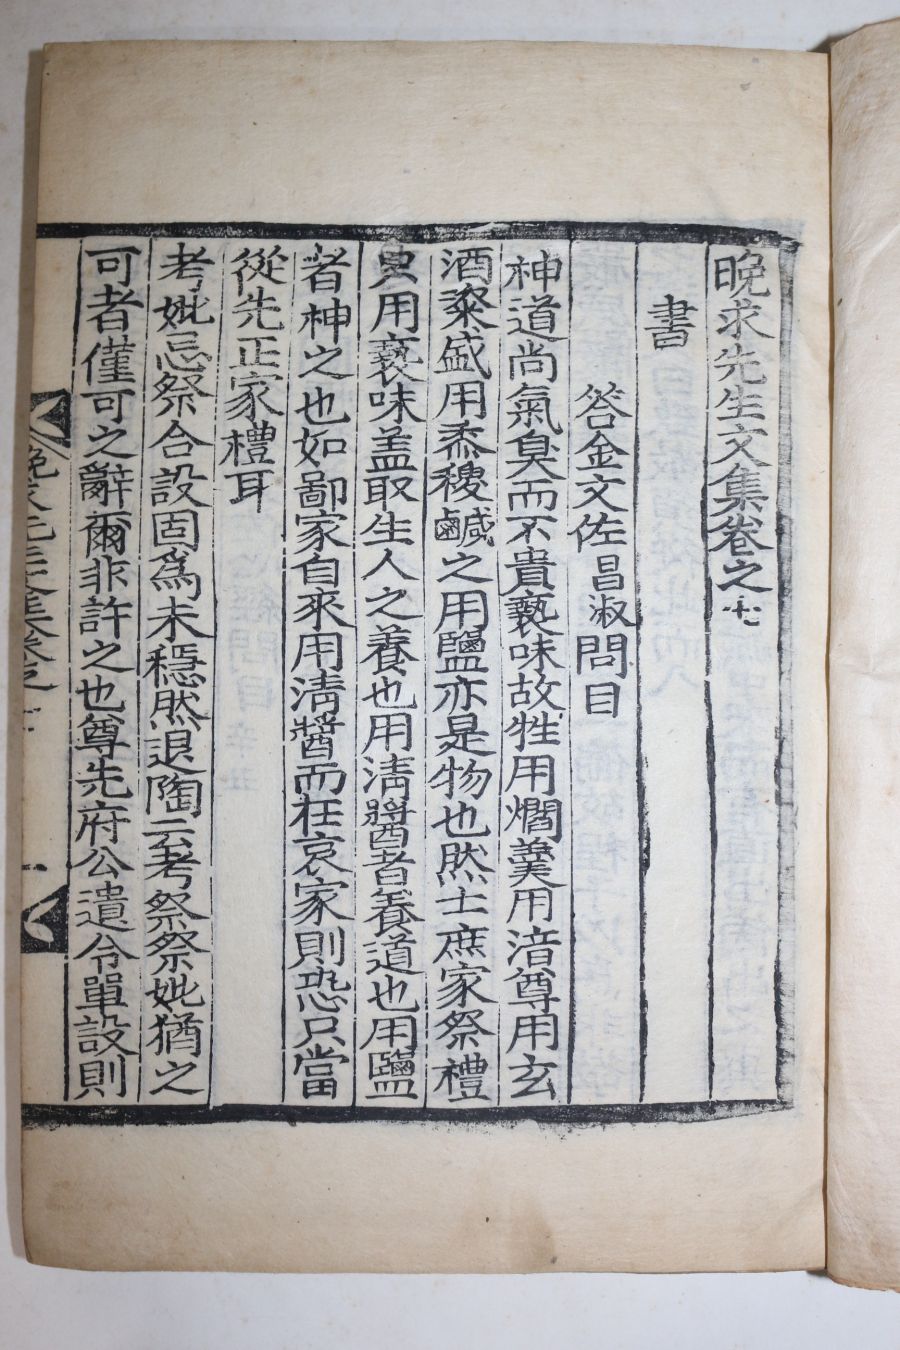 晩求先生文集卷之十
書
答金文佐昌淑問目
神道尚氣臭而不貴褻味故牲用爓羹用湆尊用玄
酒粢盛用黍稷鹹之用鹽亦是物也然士庶家祭禮
具用褻味盖取生人之養也用淸醬者養道也用鹽
者神之也如鄙家自來用淸醬而在哀家則恐只當
從先正家禮耳
考妣忌祭合設固爲未穩然退陶云考祭祭妣猶之
可者僅可之辭爾非許之也尊先府公遺令單設則
晩求先生文集卷之十
一